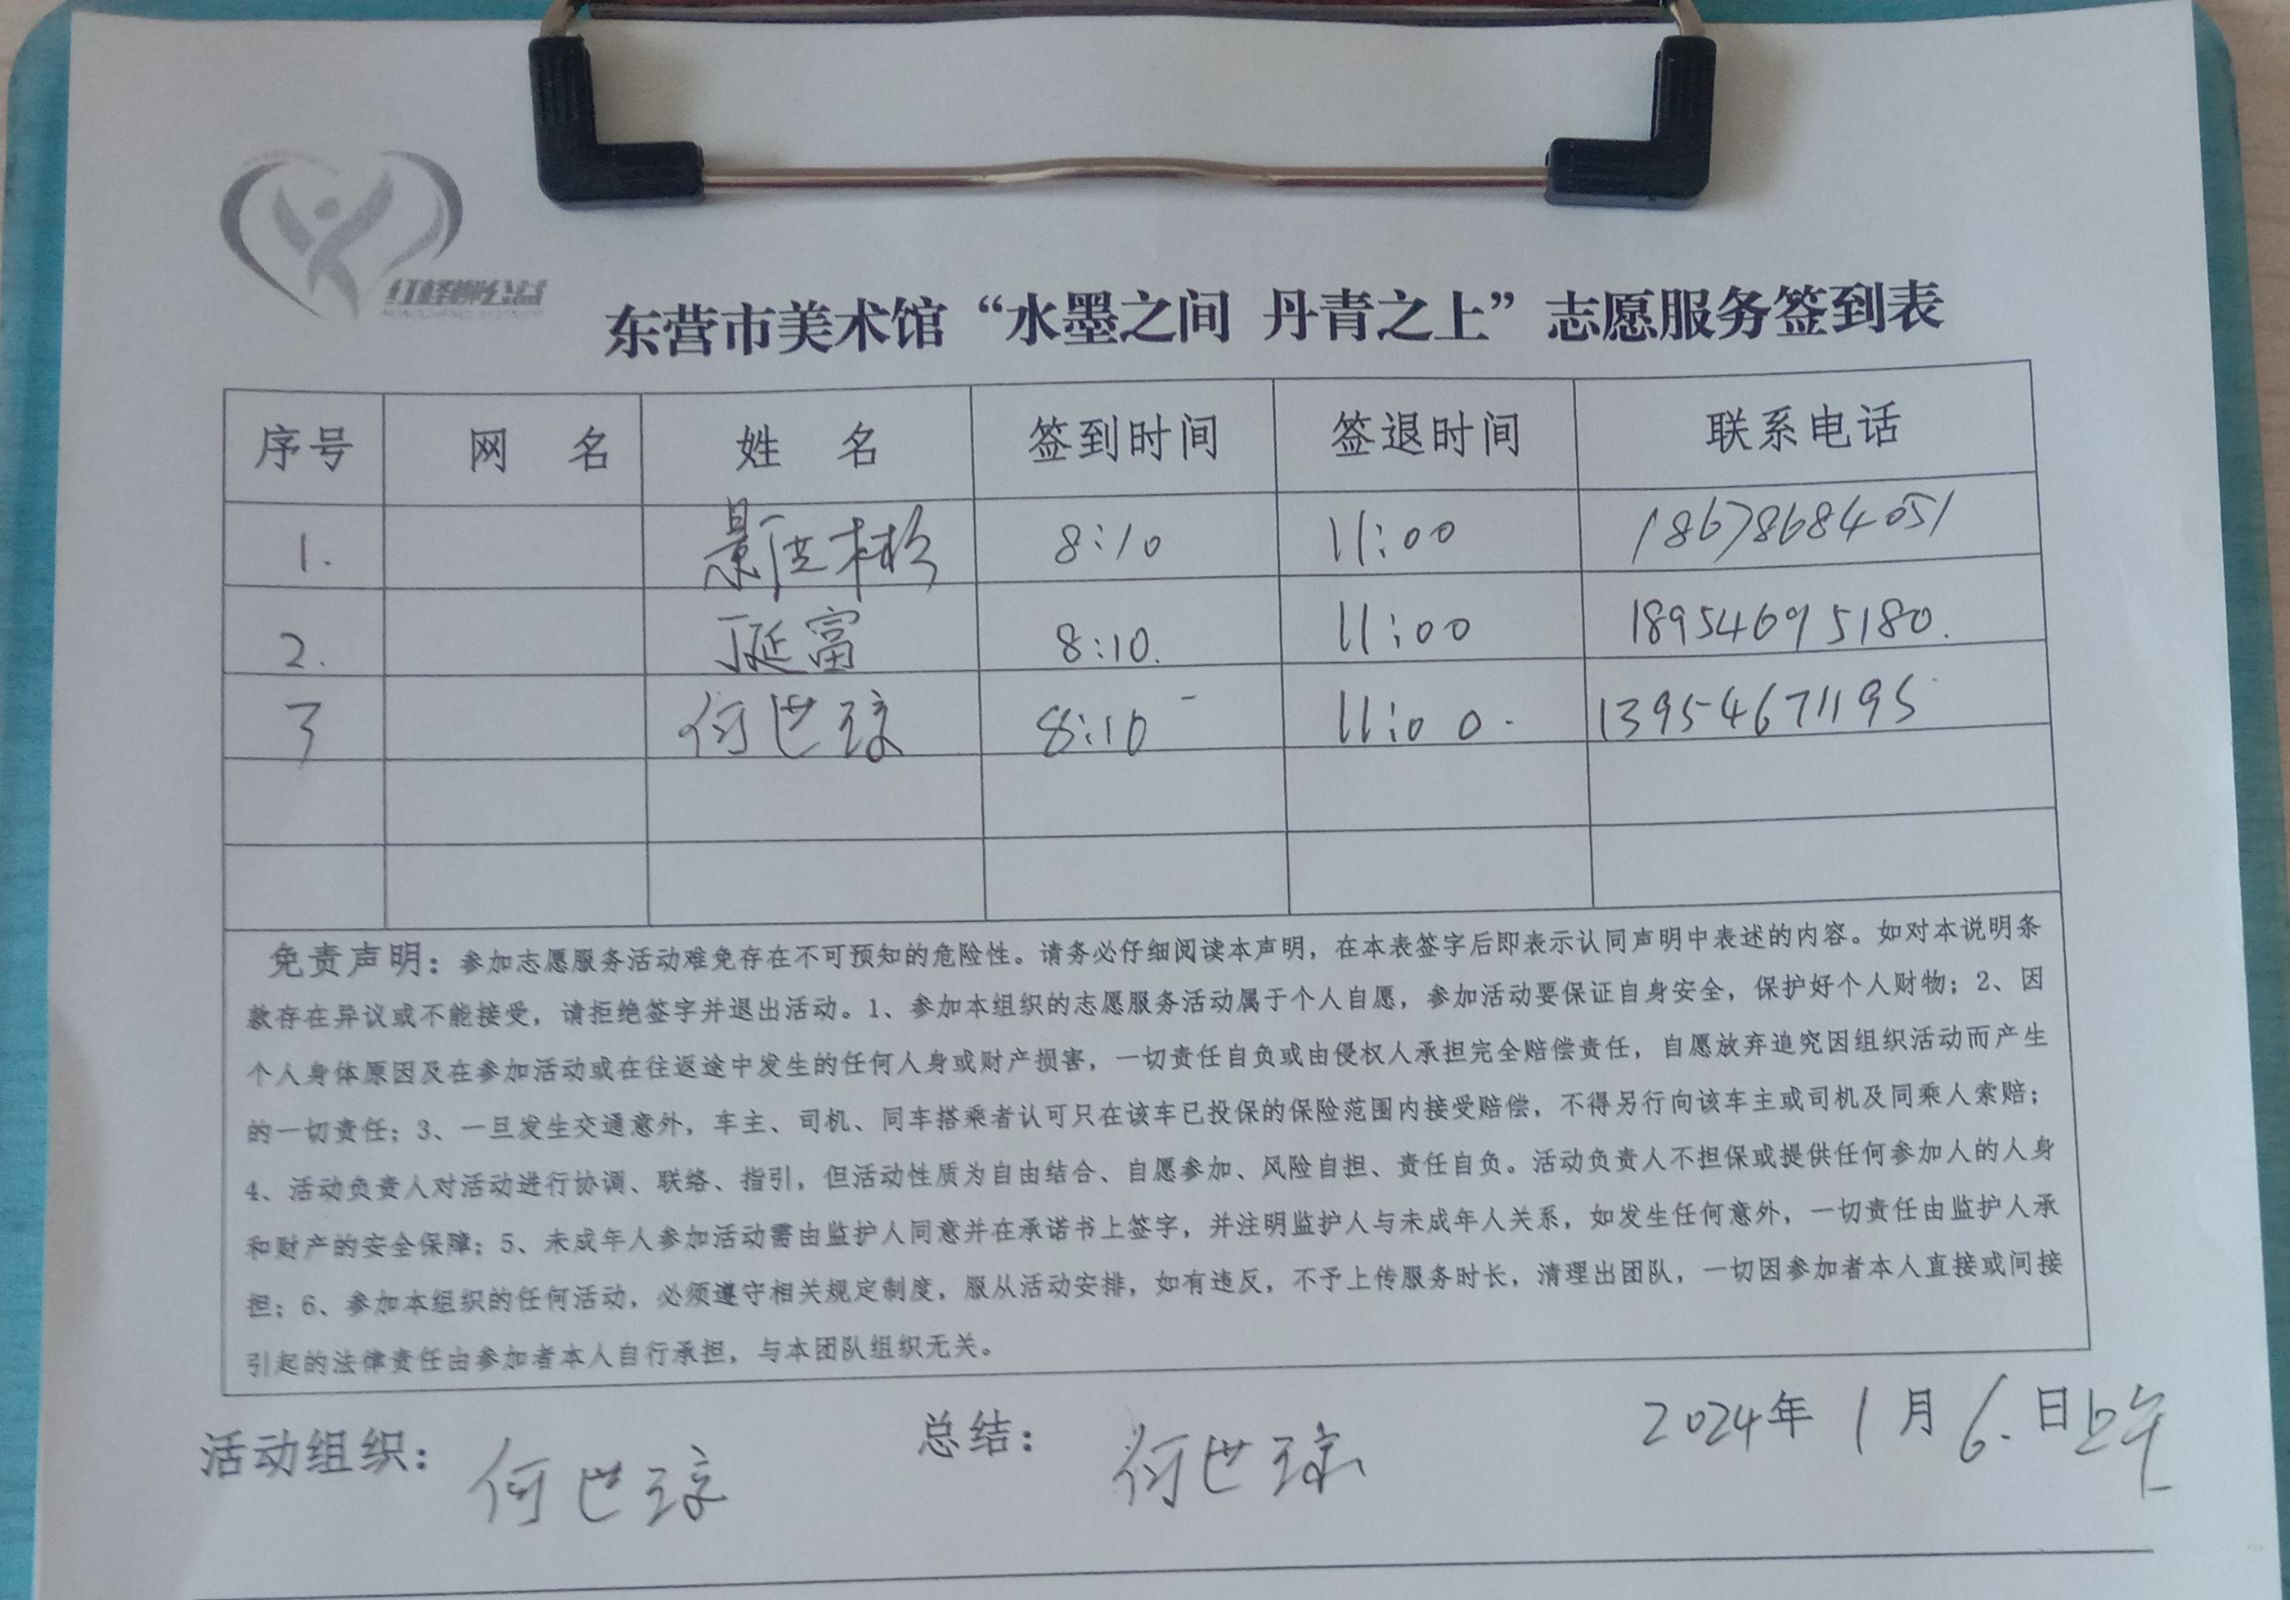 红柽柳公益
东营市美术馆“水墨之间 丹青之上”志愿服务签到表
序号 网 名 姓 名 签到时间 签退时间 联系电话
1. 8:10 11:00 18678684051
2. 丁延富 8:10. 11:00 18954695180.
3 何世琼 8:10 11:00. 13954671195
免责声明：参加志愿服务活动难免存在不可预知的危险性。请务必仔细阅读本声明，在本表签字后即表示认同声明中表述的内容。如对本说明条
款存在异议或不能接受，请拒绝签字并退出活动。1、参加本组织的志愿服务活动属于个人自愿，参加活动要保证自身安全，保护好个人财物；2、因
个人身体原因及在参加活动或在往返途中发生的任何人身或财产损害，一切责任自负或由侵权人承担完全赔偿责任，自愿放弃追究因组织活动而产生
的一切责任；3、一旦发生交通意外，车主、司机、同车搭乘者认可只在该车已投保的保险范围内接受赔偿，不得另行向该车主或司机及同乘人索赔；
4、活动负责人对活动进行协调、联络、指引，但活动性质为自由结合、自愿参加、风险自担、责任自负。活动负责人不担保或提供任何参加人的人身
和财产的安全保障；5、未成年人参加活动需由监护人同意并在承诺书上签字，并注明监护人与未成年人关系，如发生任何意外，一切责任由监护人承
担；6、参加本组织的任何活动，必须遵守相关规定制度，服从活动安排，如有违反，不予上传服务时长，清理出团队，一切因参加者本人直接或间接
引起的法律责任由参加者本人自行承担，与本团队组织无关。
活动组织：何世琼 总结：何世琼 2024年1月6.日上午